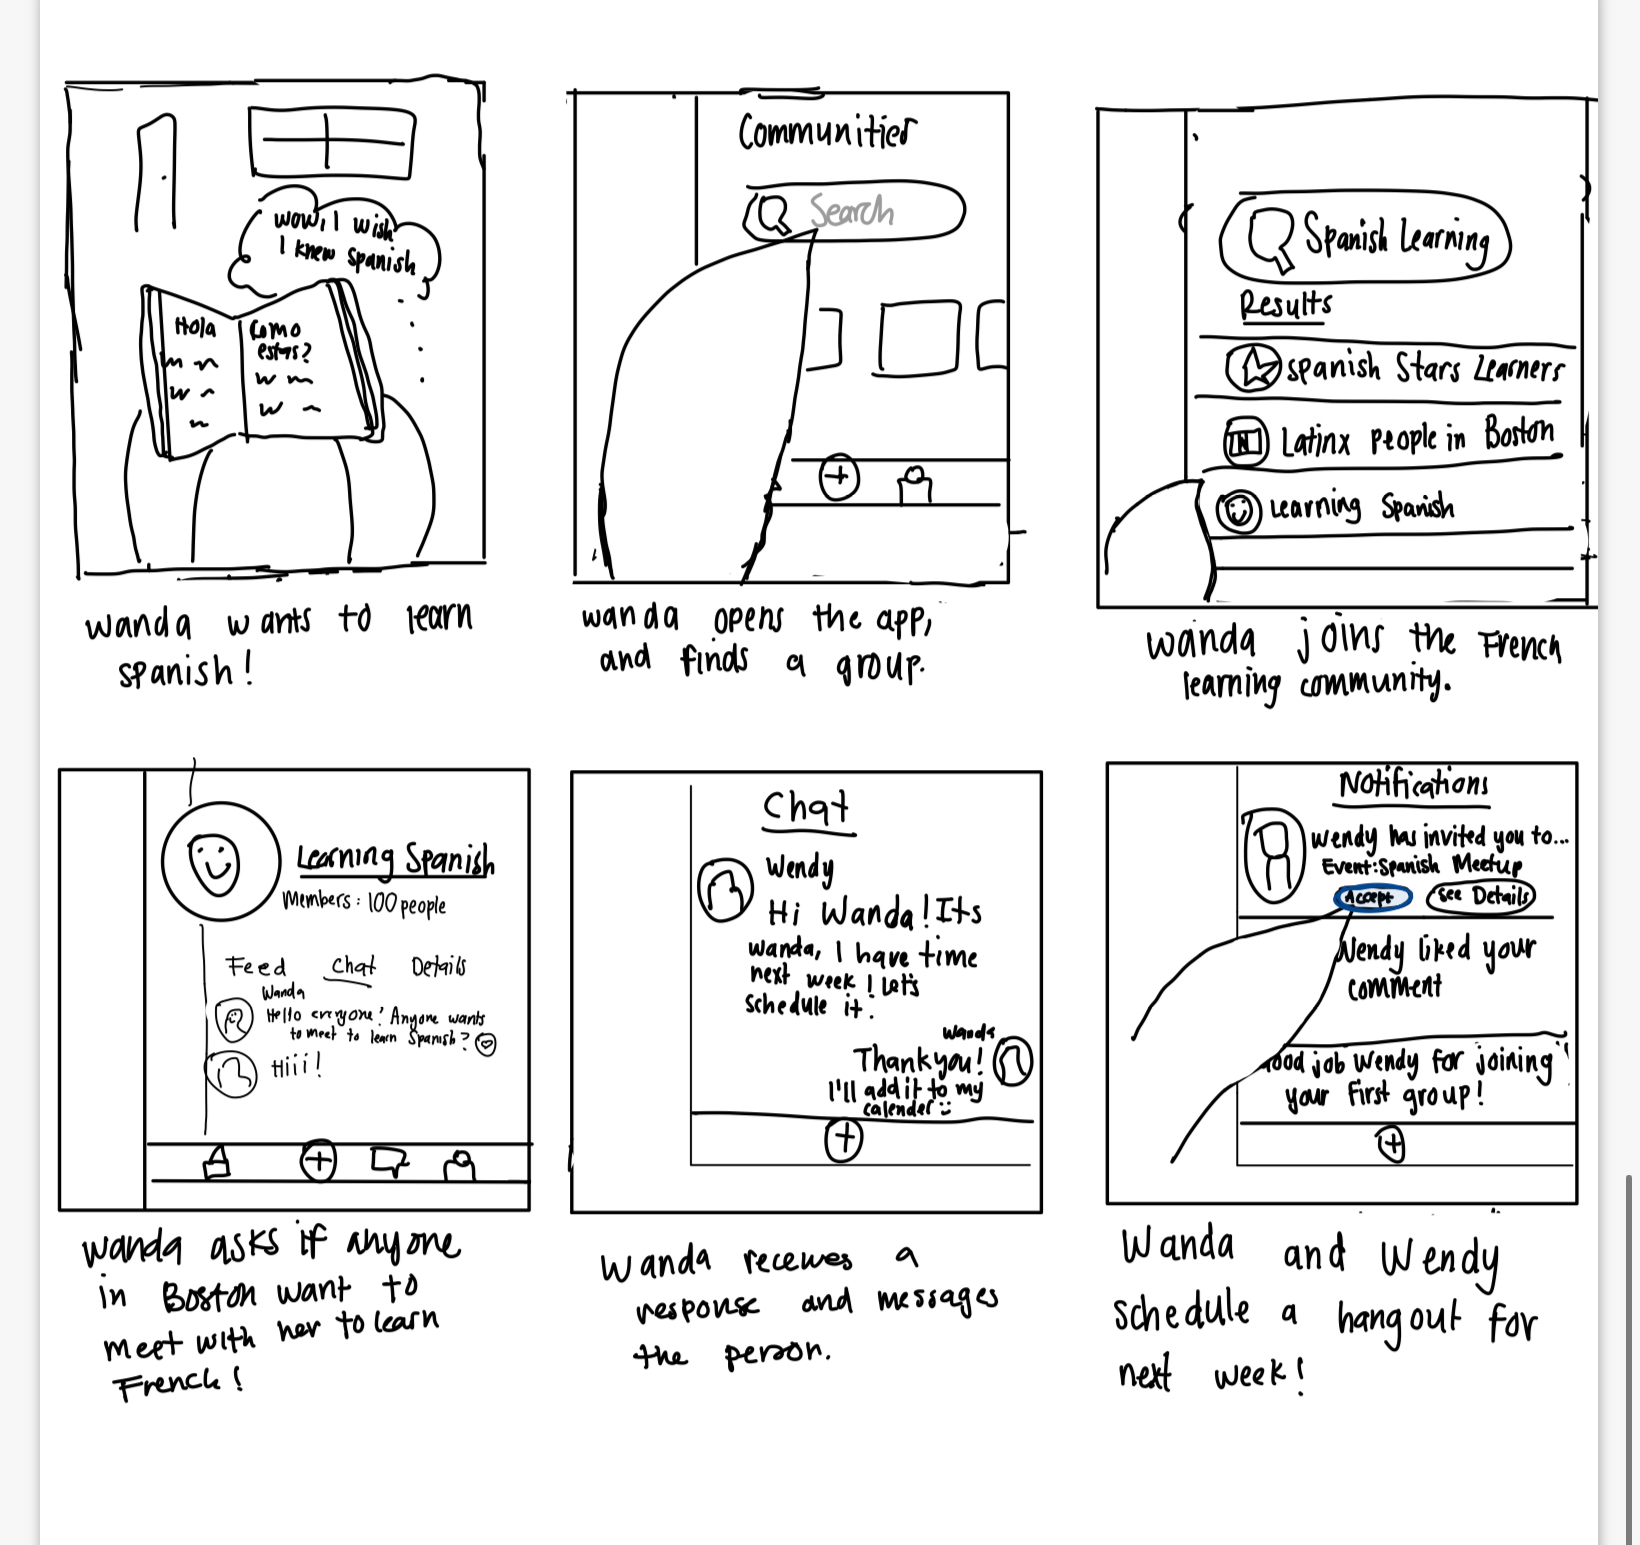 wow, I wish
I knew spanish
Hola
Como
estas?
wanda wants to learn
spanish!
Communities
Search
wanda opens the app,
and finds a group.
Spanish Learning
Results
spanish Stars Learners
Latinx people in Boston
Learning Spanish
wanda joins the French
learning community.
Learning Spanish
Members: 100 people
Feed Chat Details
Wanda
Hello everyone! Anyone wants
to meet to learn Spanish?
Hiii!
wanda asks if anyone
in Boston want to
meet with her to learn
French!
Chat
Wendy
Hi Wanda! Its
wanda, I have time
next week! Let's
schedule it.
Wanda
Thank you!
I'll add it to my
calender
Wanda receives a
response and messages
the person.
Notifications
wendy has invited you to...
Event: Spanish Meetup
Accept See Details
Wendy liked your
comment
ood job Wendy for joining
your first group!
Wanda and Wendy
schedule a hangout for
next week!